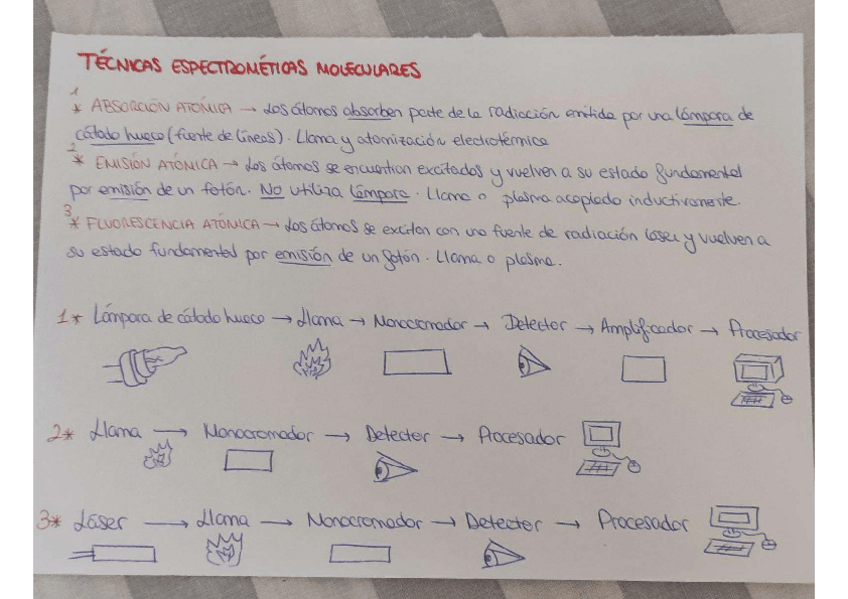 TÉCNICAS ESPECTROMÉTICAS MOLECULARES
1
* ABSORCIÓN ATÓMICA → Los átomos absorben parte de la radiación emitida por una lámpara de
cátodo hueco (fuente de líneas). Llama y atomización electrotérmica
2
* EMISIÓN ATÓMICA → Los átomos se encuentran excitados y vuelven a su estado fundamental
por emisión de un fotón. No utiliza lámpara. Llama o plasma acoplado inductivamente.
3
* FLUORESCENCIA ATÓMICA → Los átomos se excitan con una fuente de radiación láser y vuelven a
su estado fundamental por emisión de un fotón. Llama o plasma.
1* Lámpara de cátodo hueco → Llama → Monocromador → Detector → Amplificador → Procesador
2* Llama → Monocromador → Detector → Procesador
3* Láser → Llama → Monocromador → Detector → Procesador